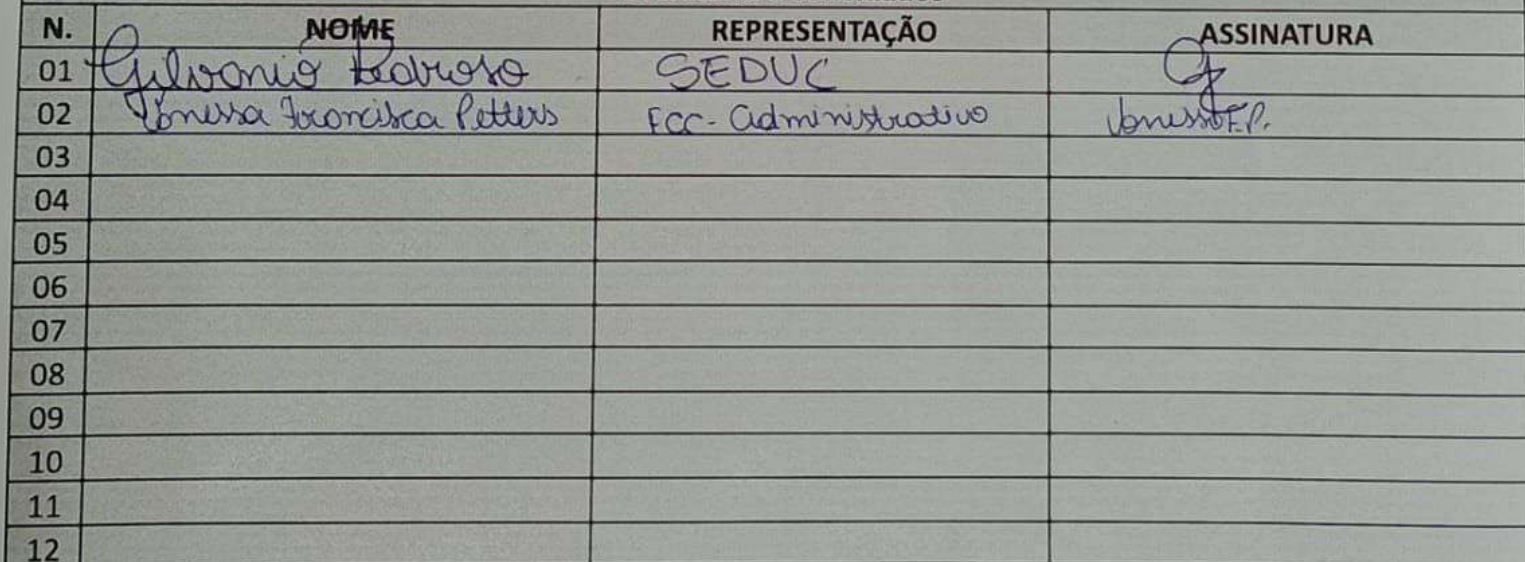 N. NOME REPRESENTAÇÃO ASSINATURA
01 Gilvonio Pedroso SEDUC
02 Vanessa Francisca Petters FCC - Administrativo Vanessa F.P.
03
04
05
06
07
08
09
10
11
12